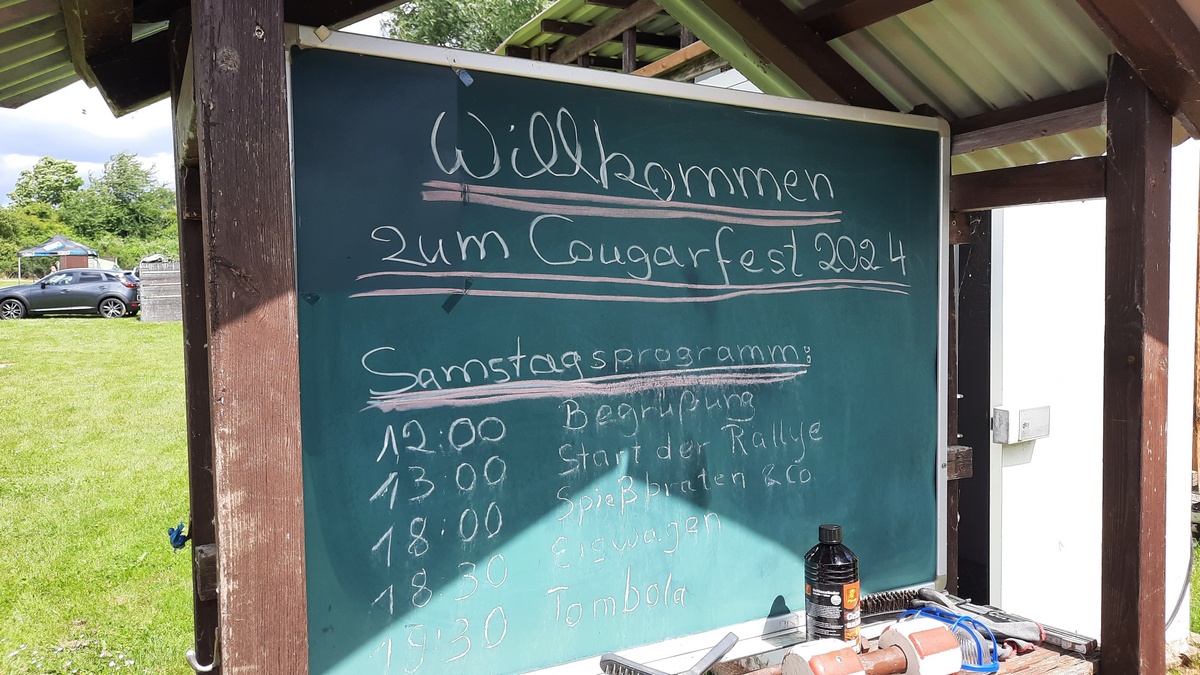 Willkommen
zum Cougarfest 2024
Samstagsprogramm:
12:00 Begrüßung
13:00 Start der Rallye
18:00 Spießbraten & Co.
18:30 Eiswagen
19:30 Tombola